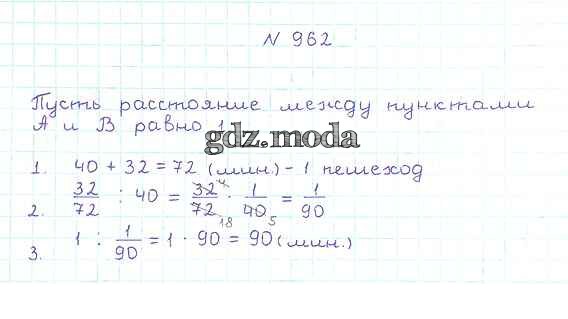 N 962
Пусть расстояние между пунктами
А и В равно 1
gdz.moda
1. 40 + 32 = 72 (мин.) - 1 пешеход
2. 32/72 : 40 = 32/72 · 1/40 = 1/90
4 18 5
3. 1 : 1/90 = 1 · 90 = 90 (мин.)